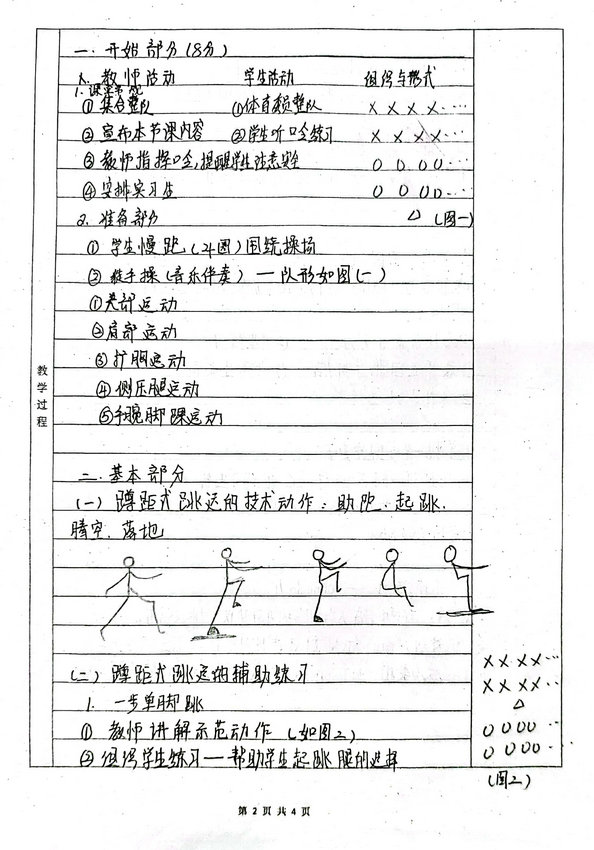 一.开始部分(8分)
教师活动 学生活动 组织与形式
1.课堂常规
①集合整队 ①体育委员整队 X X X X …
②宣布本节课内容 ②学生听口令练习 X X X X …
③教师指挥口令,提醒学生注意安全 O O O O …
④安排实习生 O O O O …
2.准备部分 △ (图一)
①学生慢跑(4圈)围绕操场
②徒手操(音乐伴奏)—队形如图(一)
①头部运动
②肩部运动
③扩胸运动
④侧压腿运动
⑤手腕脚踝运动
教学过程
二.基本部分
(一)蹲距式跳远的技术动作:助跑.起跳.
腾空.落地
(二)蹲距式跳远的辅助练习
X X X X …
X X X X …
1.一步单脚跳
△
①教师讲解示范动作(如图2)
O O O O …
②组织学生练习——帮助学生起跳腿的选择
O O O O …
(图2)
第 2 页 共 4 页